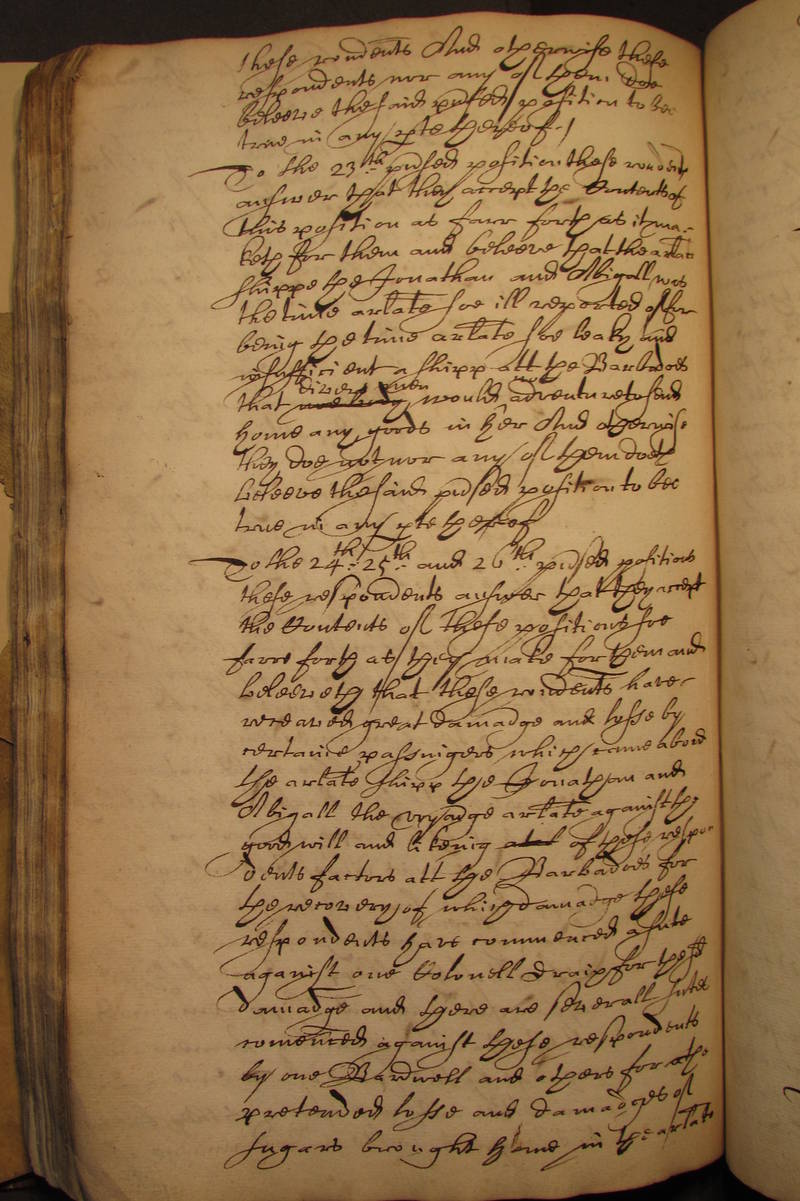 these rendents And otherwise these
respondents nor any of them doe
beleeve the said pmsed position to bee
true in any pte thereof./
To the 23th pmsed position these rendents
answer that they accept the Contents of
this position as farr forth as it ma-
keth for them and beleeve that the arlate
shippe the Jonathan and Abigall was
the time arlate soe ill reported of for
being the time arlate soe leaky and
insufficient a shipp att the Barbados
that divers men would not adventure to send
home any goods in her And otherwise
they doe not nor any of them doth
beleeve the said pmsed position to bee
true in any pte thereof
To the 24th: 25th: and 26th: pmsed positions
these respondents answer that they accept
the Contents of these positions soe
farre forth as they make for them and
beleeveth that these rendents have
receaved great damadge and losse by
certaine passingers which came abord
the arlate shipp the Jonathan and
Abigall the voyadge arlate against the
good will and likeing of these respon
dents factors att the Barbados for
the recovery of which damadge these
respondents have commenced a suite
against one Colonell Draix for the sd
damadge and there are severall suites
comenced against these respondents
by one Bardwell and others for the
pretended losse and damadges of
sugars brought home in the arlate